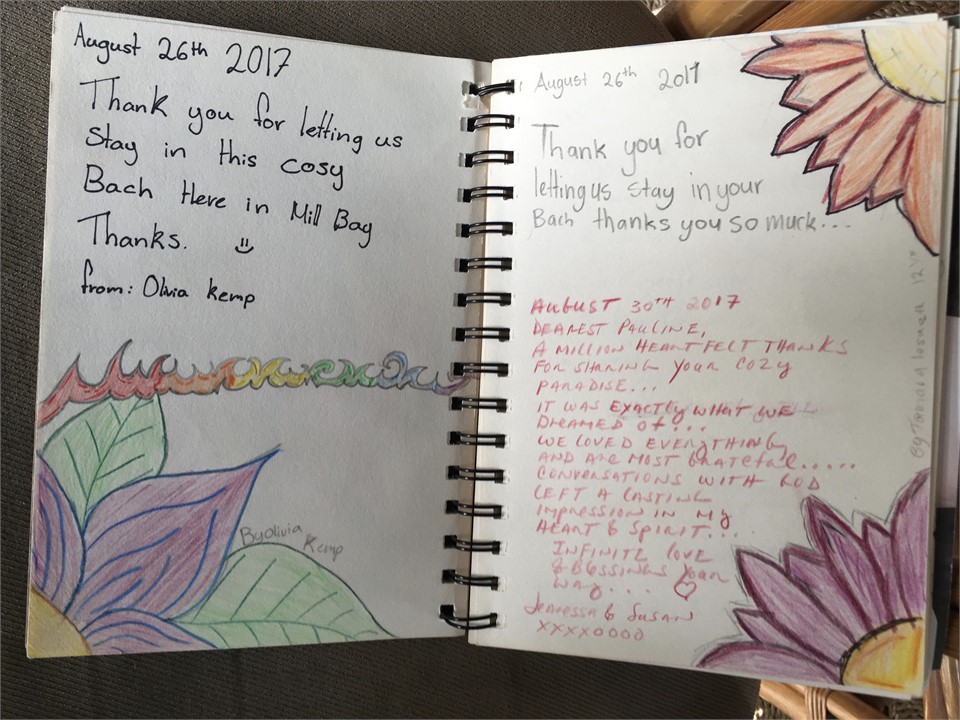 August 26th 2017
Thank you for letting us
Stay in this cosy
Bach Here in Mill Bay
Thanks.
from: Olivia kemp
By Olivia
Kemp
August 26th 2017
Thank you for
letting us stay in your
Bach thanks you so muck...
AUGUST 30TH 2017
DEAREST PAULINE,
A MILLION HEARTFELT THANKS
FOR SHARING YOUR COZY
PARADISE...
IT WAS EXACTLY WHAT WE
DREAMED OF...
WE LOVED EVERYTHING
AND ARE MOST GRATEFUL.....
CONVERSATIONS WITH GOD
LEFT A LASTING
IMPRESSION IN MY
HEART & SPIRIT....
INFINITE LOVE
& BLESSINGS YOUR
WAY...
& SUSAN
XXXXOOOO
By